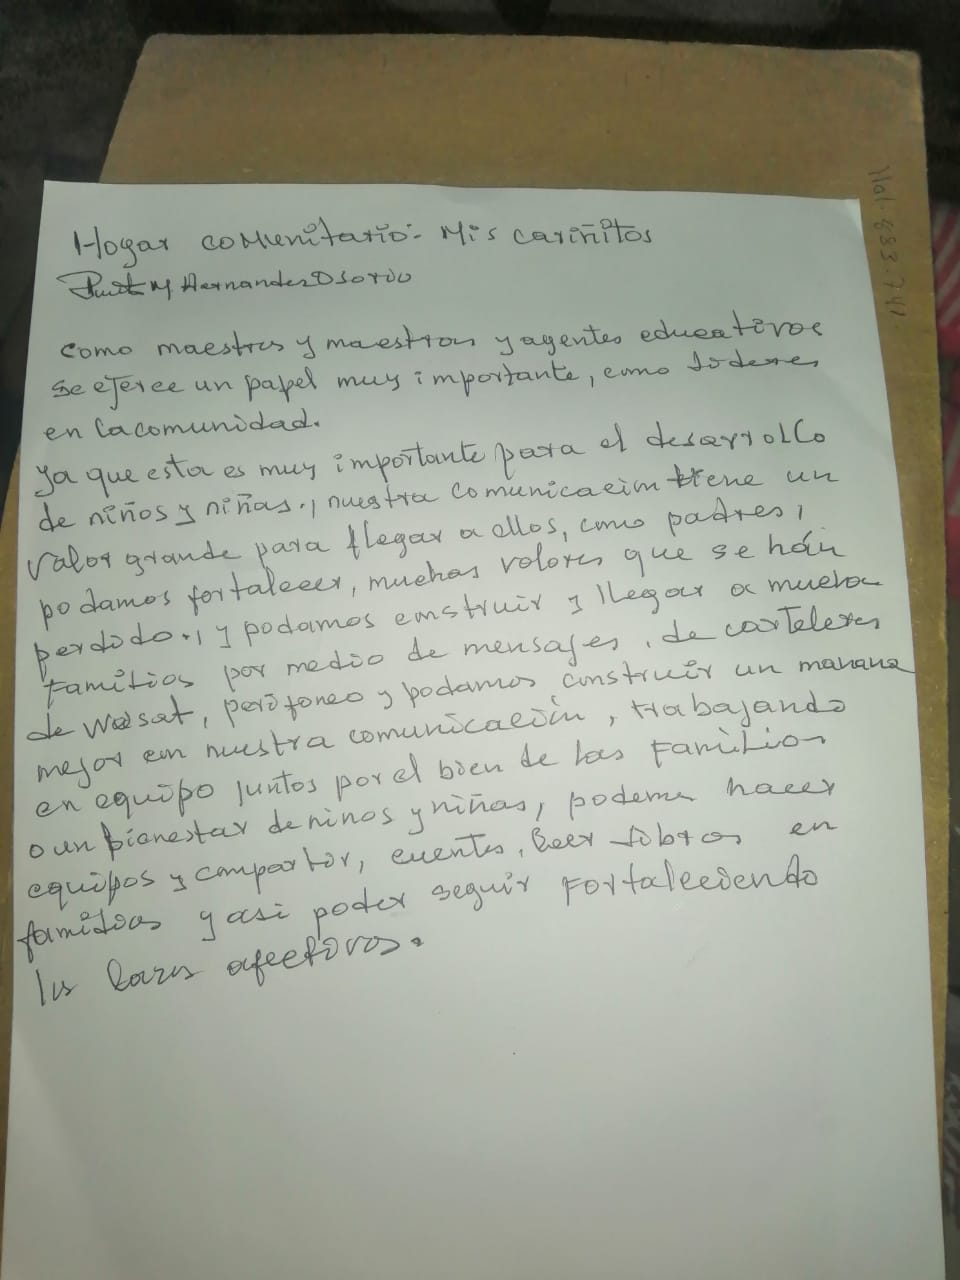 Hogar comunitario: Mis cariñitos
M Hernandez Osorio
como maestros y maestras y agentes educativos
se ejerce un papel muy importante, como lideres
en la comunidad.
ya que esta es muy importante para el desarrollo
de niños y niñas., nuestra comunicacion tiene un
valor grande para llegar a ellos, como padres,
podamos fortalecer, muchos valores que se hán
perdido., y podamos construir y llegar a mucha
familias por medio de mensajes, de carteleras
de Wasat, perifoneo y podamos construir un manana
mejor en nuestra comunicación, trabajando
en equipo juntos por el bien de las familias
o un bienestar de ninos y niñas, podemos hacer
equipos y compartir, cuentos, leer libros en
familias y asi poder seguir fortaleciendo
los lazos afectivos.